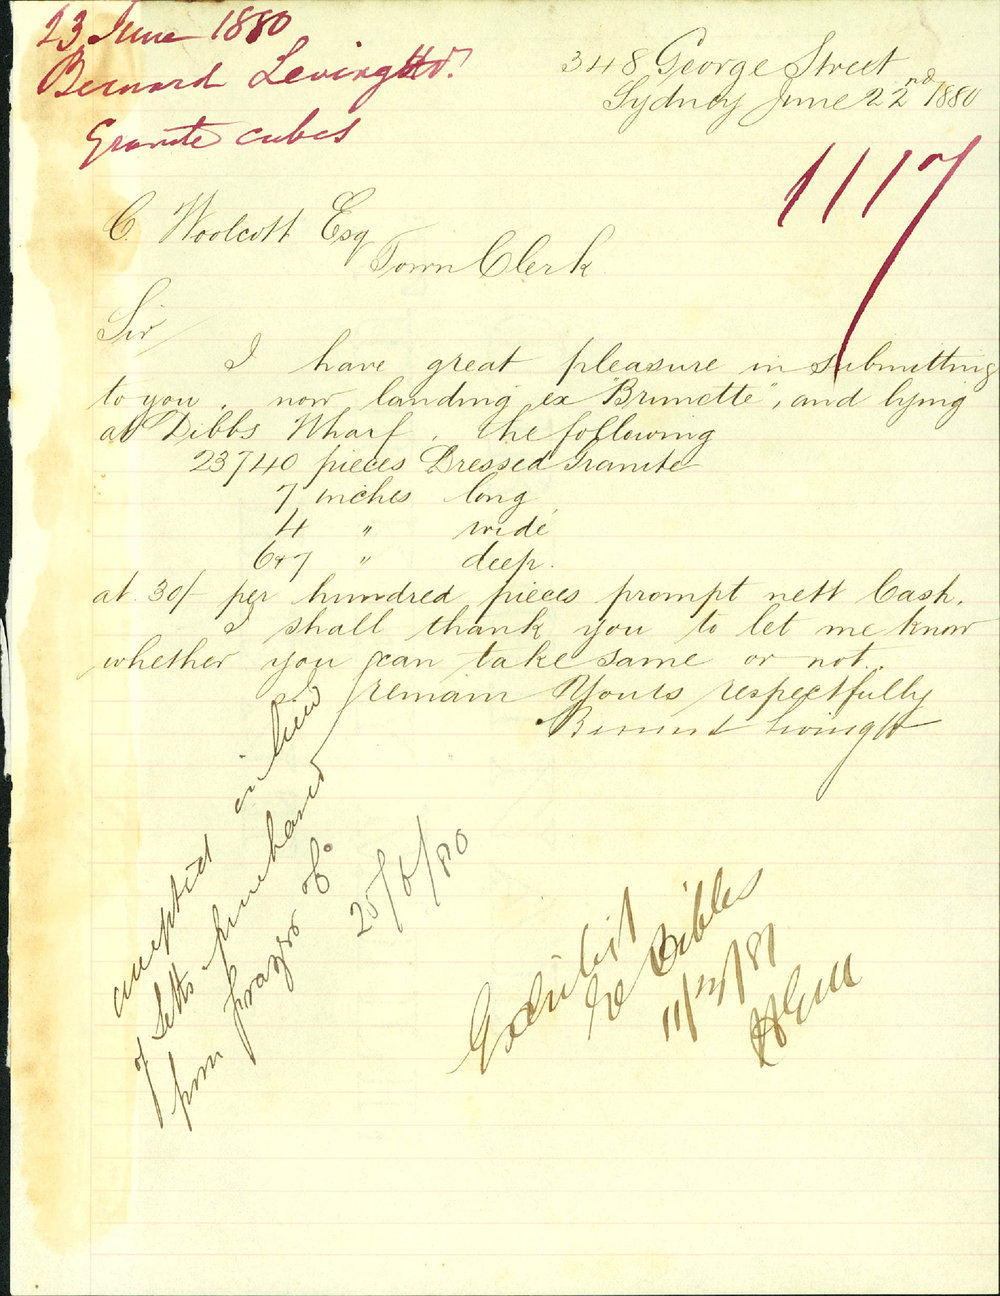 23 June 1880
Bernard
Granite cubes
348 George Street
Sydney June 22nd 1880
1117
C. Woolcott Esq
Town Clerk
Sir
I have great pleasure in submitting
to you, now landing ex "Brunette", and lying
at Dibbs Wharf, the following
23740 pieces Dressed Granite
7 inches long
4 " wide
6&7 " deep.
at 30/- per hundred pieces prompt nett Cash.
I shall thank you to let me know
whether you can take same or not.
I remain Yours respectfully
accepted in lieu
of Setts purchased
from
25/6/80
Exhibit